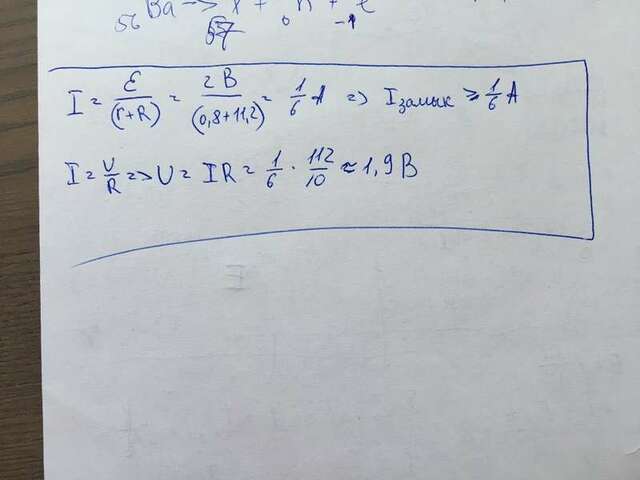 56 Ba → Y + 0 n + -1 e
57
I = ℰ/(r+R) = 2В/(0,8+11,2) = 1/6 А => Iзамык ≥ 1/6 А
I = U/R => U = IR = 1/6 · 112/10 ≈ 1,9 В